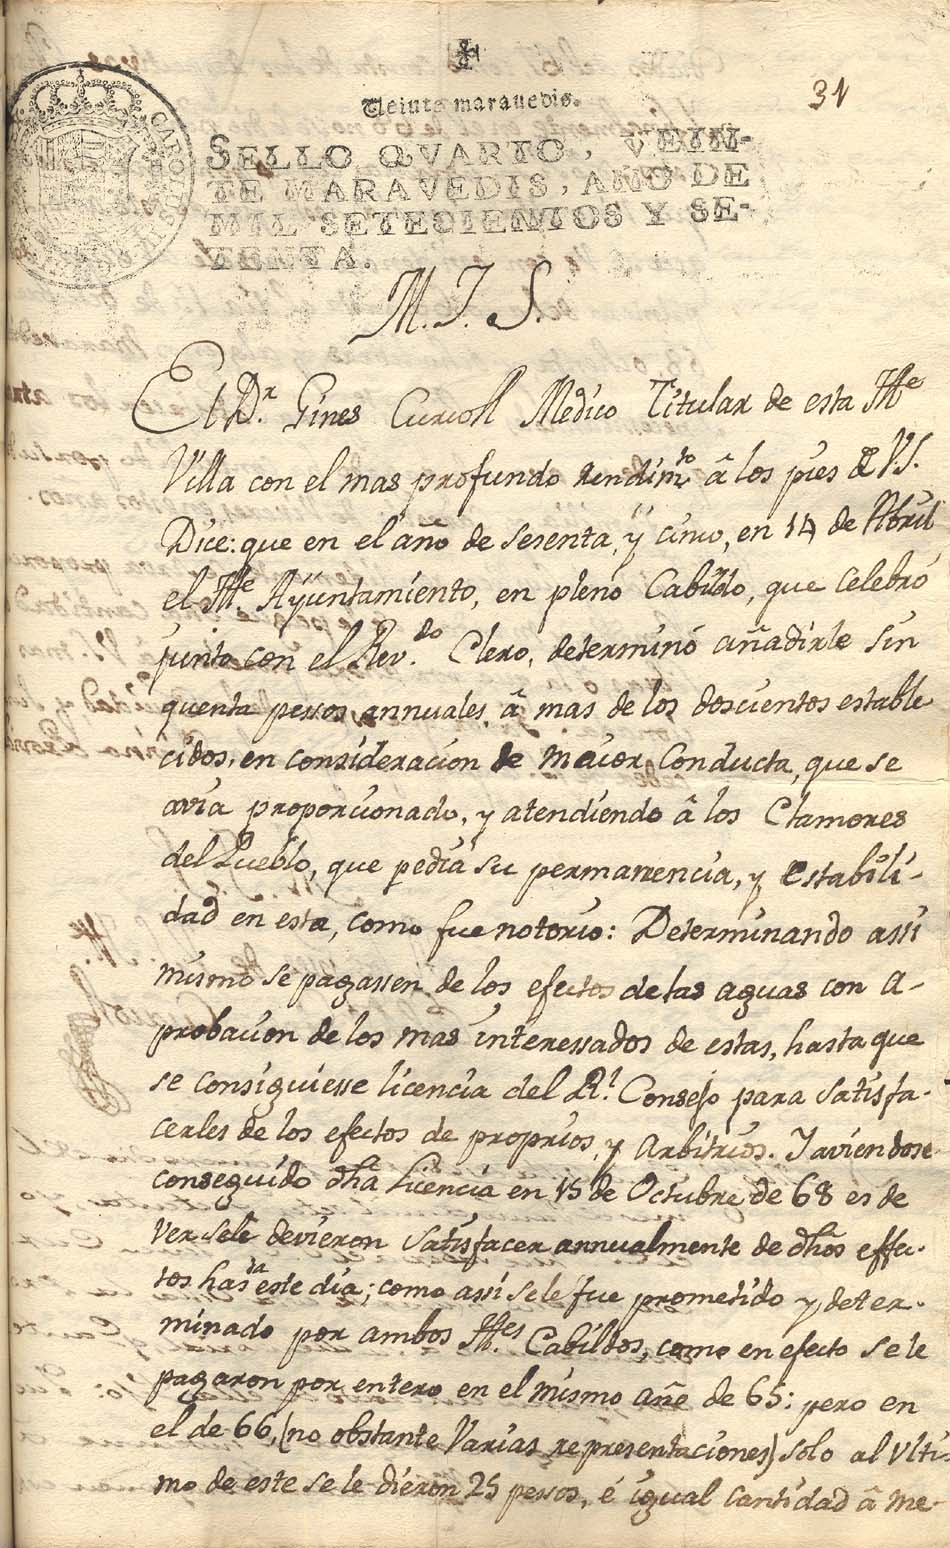 31
Veinte maravedis.
SELLO QVARTO, VEIN-
TE MARAVEDIS, AÑO DE
MIL SETECIENTOS Y SE-
TENTA.
CAROLUS
M. I. S.
El D.r Gines Curioll Medico Titular de esta Ill.e
Villa con el mas profundo rendim.to â los pies de VS.
Dice: que en el año de sesenta, y cinco, en 14 de Abril
el Ill.e Ayuntamiento, en pleno Cabildo, que celebró
junto con el Rev.do Clero, determinó añadirle sin
quenta pessos annuales, â mas de los doscientos estable
cidos, en consideracion de maior Conducta, que se
avia proporcionado, y atendiendo â los Clamores
del Pueblo, que pedia su permanencia, y estabili-
dad en esta, como fue notorio: Determinando assi
mismo se pagassen de los efectos de las aguas con a-
probacion de los mas interessados de estas, hasta que
se consiguiesse licencia del R.l Consejo para satisfa-
cerles de los efectos de proprios, y Arbitrios. Y aviendose
conseguido dha Licencia en 15 de Octubre de 68 es de
ver se le devieron satisfacer annualmente de dhos effec-
tos has.ta este dia; como assi se le fue prometido y deter-
minado por ambos Ill.es Cabildos, como en efecto se le
pagaron por entero en el mismo añe de 65: pero en
el de 66, (no obstante Varias representaciones) solo al Ulti-
mo de este se le dieron 25 pessos, é igual Cantidad â me-